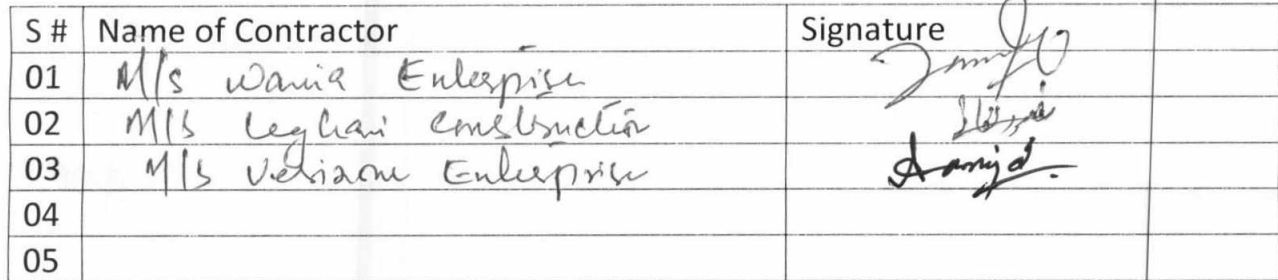 S # Name of Contractor Signature
01 M/s Wania Enterprise
02 M/s Leghari Construction
03 M/s Enterprise
04
05